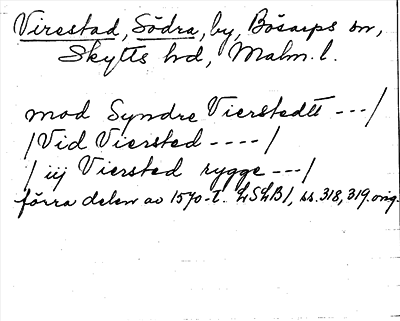 Virestad, Södra, by, Bösarps sn,
Skytts hd, Malm. l.
mod Syndre Vierstedt ---/
/Vid Viersted ----/
/ iij Viersted rygge ---/
förra delen av 1570-t. LSLB1, ss. 318, 319. orig.